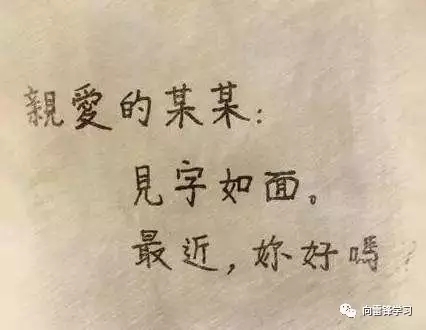 親愛的某某：
見字如面。
最近，妳好嗎
向雷锋学习